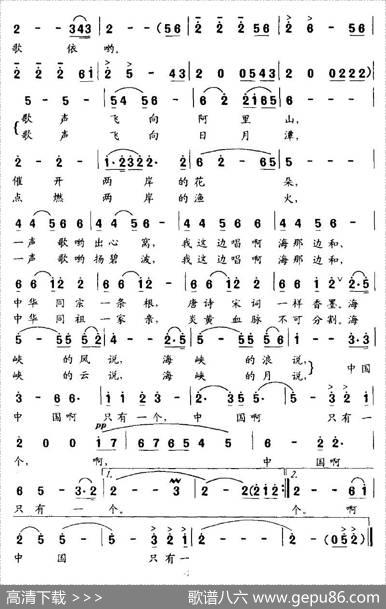 2 - - 343 | 2 - - (56 | 2 2 2 56 | 2 6 - 56 |
歌 依 哟。
2 2 2 61 | 2 5 - 43 | 2 0 0543 | 2 0 (0222) |
5 - 5 - | 54 56 - | 6 2 2165 | 5 - - - |
歌 声 飞 向 阿 里 山，
歌 声 飞 向 日 月 潭，
2 - 2 - | 1·232 2· | 6 2 - 65 | 5 - - - |
催 开 两 岸 的 花 朵，
点 燃 两 岸 的 渔 火，
44 56 6 | 44 56 6 | 44 56 6 | 44 56 6 |
一声 歌哟 出心 窝， 我这 边唱 啊 海那 边和，
一声 歌哟 扬碧 波， 我这 边唱 啊 海那 边和，
66 12 2 | 66 12 2 | 66 12 2 | 66 12 2·5 |
中华 同宗 一条 根， 唐诗 宋词 一样 香墨。海
中华 同祖 一家 亲， 炎黄 血脉 不可 分割。海
5 - 55 52 | 4 - - 2·5 | 5 - 55 62 | 1 - - 3·3 |
峡 的风 说， 海 峡 的浪 说，
峡 的云 说， 海 峡 的月 说，
中国
3 - 66· | 11 23 - | 2·35 5 | 5 - 32 1 |
中 国啊 只有 一个， 中 国啊 只有 一
pp
2 0 0 17 | 67 65 45 | 6 - - - | 2 - 22· |
个， 啊， 中 国啊
1. 2.
6 5 - 3·2 | 2 - - 3 | 2 - 2(212) :| 2 - - 61 |
只有 一 个。 个。 啊
2 5 5 - | 5 - 32 1 | 2 - - - | 2 - (052) ||
中 国 只有 一
高清下载 >>>
歌谱八六 www.gepu86.com